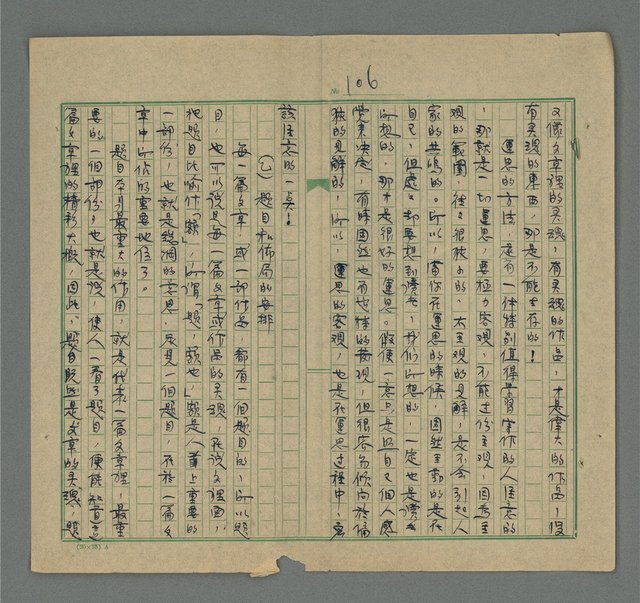 No 106
又像文章裡的灵魂,有灵魂的作品,才是偉大的作品,假
有灵魂的東西,那是不能生存的!
運思的方法,還有一件特別值得學習寫作的人注意的
,那就是一切運思,要極力客观,不能过份主观,因為主
观的範圍,往々很狹小的,太主观的見解,是不会引起人
家的共鳴的。所以,當你在運思的時候,固然主動的是在
自己,但處々却要想到讀者,我们所想的,一定也是讀者
所想的,那才是很好的運思。假使一意只是由自己個人感
覺來決定,有時固然也有独特的發現,但很容易傾向於偏
狹的見解的,所以,運思的客观,也是在運思过程中,應
該注意的一点!
㈡ 題目和佈局的安排
每一篇文章,或一部作品,都有一個題目的,所以題
目,也可以說是每一篇文章或作品的灵魂,在說文裡面,
把題目比喻作「額」,所謂「題,額也」,額是人首上重要的
一部份,也就是綫洞的意思,足見一個題目,在於一篇文
章中所佔的重要地位了。
題目本身最重大的作用,就是代表一篇文章裡,最重
要的一個部份,也就是說,使人一看了題目,便能知道這
篇文章裡的精彩大概,因此,題目既然是文章的灵魂,題
(20×25) A